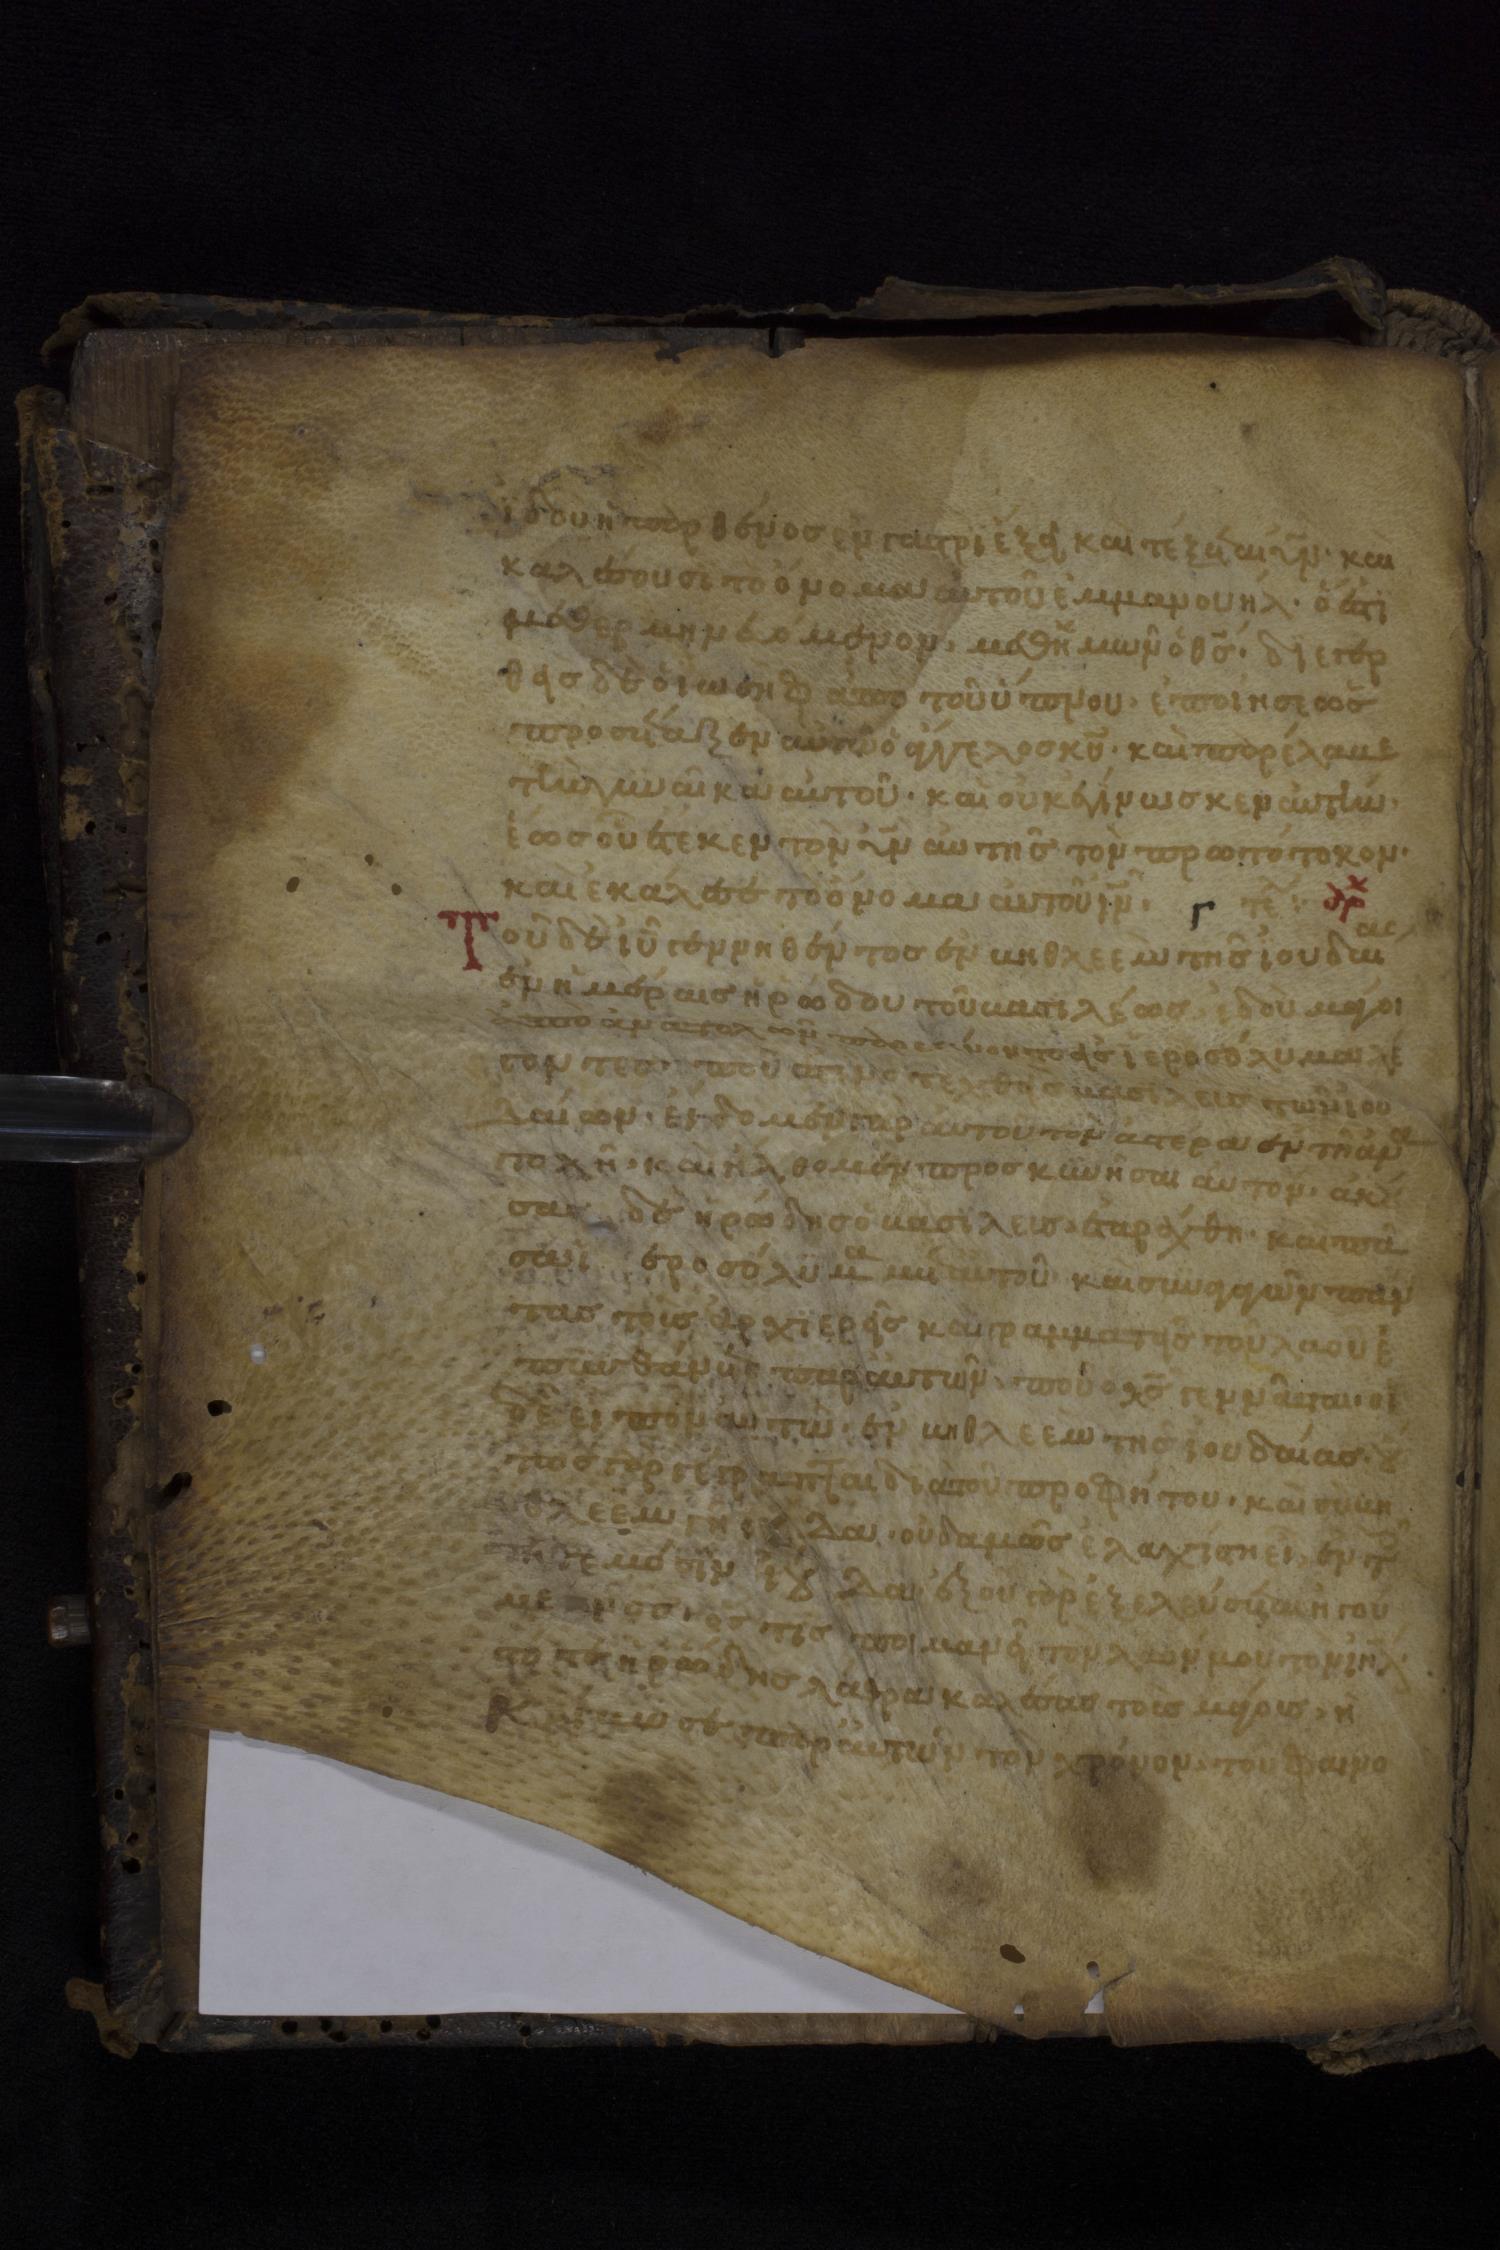 ἰδου ἡ παρθένος ἐν γαστρὶ ἕξει καὶ τέξεται υἱν· καὶ
καλέσουσι τὸ ὄνομα αὐτοῦ ἐμμανουήλ· ὅ ἐστι
μεθερμηνευόμενον, μεθ ἡμῶν ὁ θς· διεγερ
θεὶς δὲ ὁ ἰωσὴφ ἀπο τοῦ ὕπνου· ἐποίησεν ὡς
προσέταξεν αὐτῶ ὁ ἄγγελος κυ· καὶ παρέλαβε
τὴν γυναῖκα αὐτοῦ· καὶ οὐκ ἐγίνωσκεν αὐτὴν·
ἕως οὗ ἔτεκεν τὸν υἱν αὐτῆς τὸν πρωτότοκον·
καὶ ἐκάλεσε τὸ ὄνομα αὐτοῦ ιν· Γ τε αρχ
Τοῦ δὲ ιυ γεννηθέντος ἐν βηθλεὲμ τῆς ἰουδαιας
ἐν ἡμέραις ἡρώδου τοῦ βασιλέως· ἰδοὺ μάγοι
ἀπο ἀνατολῶν παρεγένοντο εἰς ἱεροσόλυμα λέ
γοντες· ποῦ ἐστιν ὁ τεχθεὶς βασιλεὺς τῶν ἰου
δαίων· εἴδομεν γὰρ αὐτοῦ τὸν ἀστέρα ἐν τῆ ἀνα
τολῆ· καὶ ἤλθομεν προσκυνῆσαι αὐτον· ἀκού
σας δὲ ἡρώδης ὁ βασιλεὺς ἐταράχθη· καὶ πᾶ
σα ἱεροσόλυμα μετ αὐτοῦ· καὶ συναγαγὼν πάν
τας τοὺς ἀρχιερεῖς καὶ γραμματεῖς τοῦ λαοῦ ἐ
πυνθάνετο παρ αὐτῶν· ποῦ ὁ χς γεννᾶται· οἱ
δὲ εἶπον αὐτῶ· ἐν βηθλεὲμ τῆς ἰουδαίας· οὕ
τως γὰρ γέγραπται διὰ τοῦ προφήτου· καὶ σὺ βη
θλεὲμ γῆ ἰούδα· οὐδαμῶς ἐλαχίστη εἶ· ἐν τοῖς
ἡγεμόσιν ἰούδα· ἐξ οὗ γὰρ ἐξελεύσεται ἡγού
μενος· ὅστις ποιμανεῖ τὸν λαόν μου τὸν ιηλ·
τότε ἡρώδης λάθρα καλέσας τοὺς μάγους, ἠ
κρίβωσε παρ αὐτῶν τὸν χρόνον τοῦ φαινο